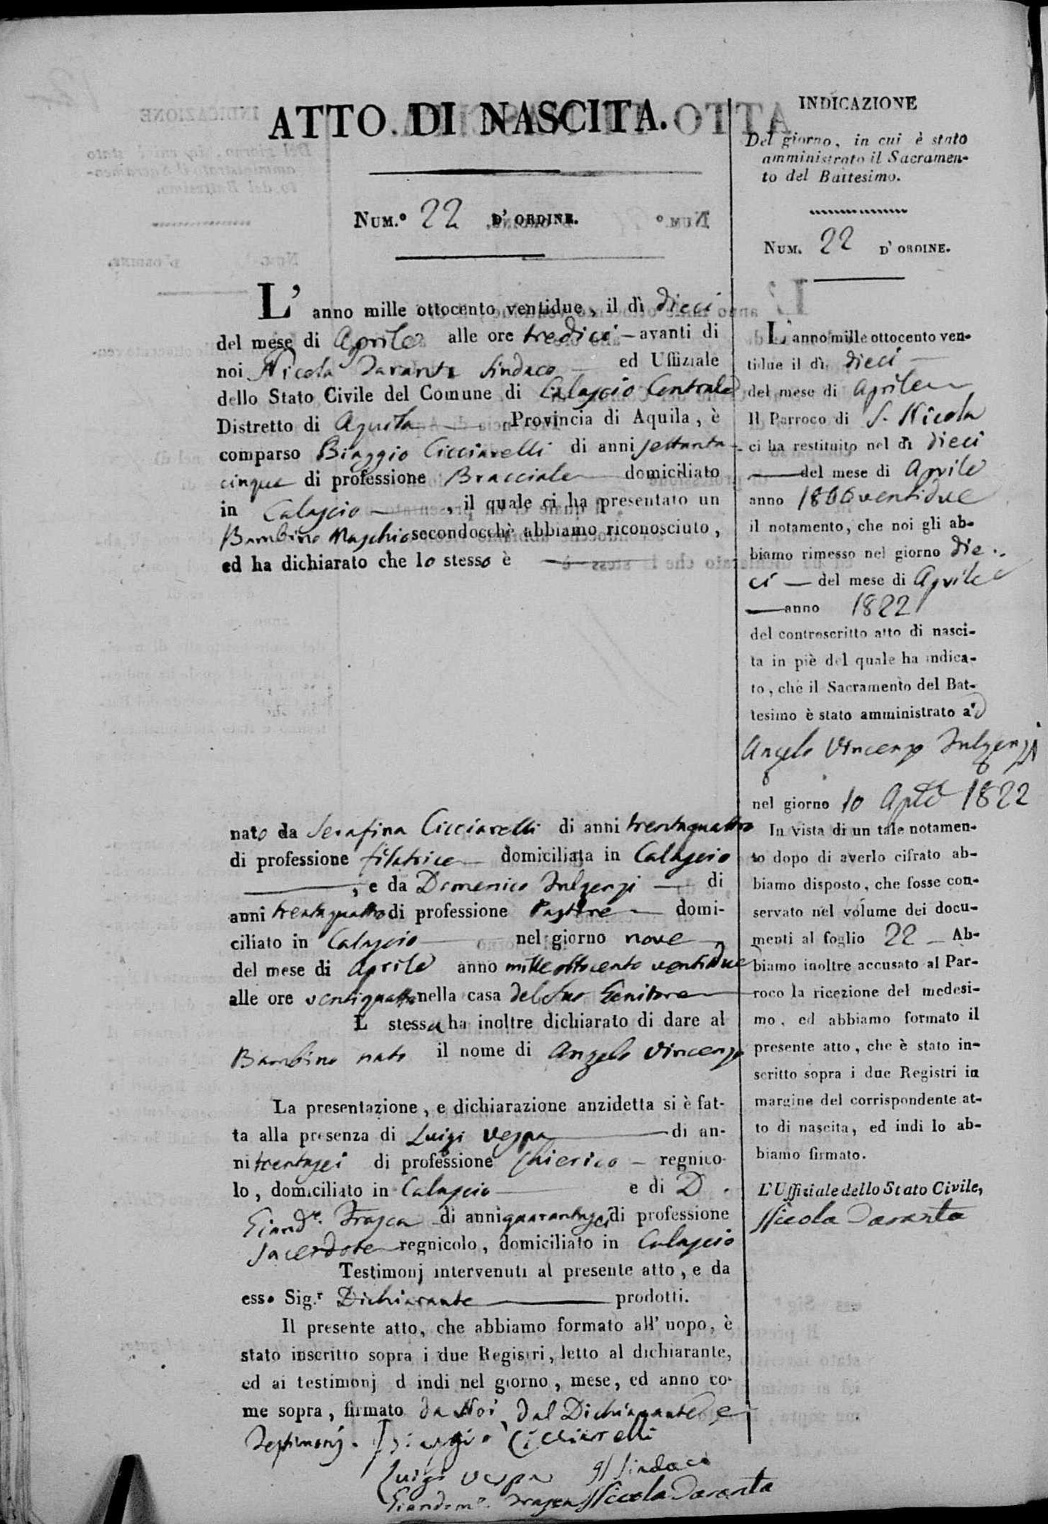 ATTO DI NASCITA.
NUM.° 22 D' ORDINE.
L' anno mille ottocento ventidue, il dì dieci
del mese di Aprile alle ore tredici - avanti di
noi Nicola Taranta Sindaco ed Uffiziale
dello Stato Civile del Comune di Calascio Centrale
Distretto di Aquila Provincia di Aquila, è
comparso Biaggio Cicciarelli di anni settanta
cinque di professione Bracciale domiciliato
in Calascio, il quale ci ha presentato un
Bambino Maschio secondocchè abbiamo riconosciuto,
ed ha dichiarato che lo stesso è
nato da Serafina Cicciarelli di anni trentaquattro
di professione filatrice domiciliata in Calascio
, e da Domenico Fulgenzi di
anni trentaquattro di professione Pastore domi-
ciliato in Calascio nel giorno nove
del mese di Aprile anno milleottocento ventidue
alle ore ventiquattro nella casa del suo Genitore
L stessa ha inoltre dichiarato di dare al
Bambino nato il nome di Angelo Vincenzo
La presentazione, e dichiarazione anzidetta si è fat-
ta alla presenza di Luigi Vespa di an-
ni trentasei di professione Chierico - regnico-
lo, domiciliato in Calascio e di D.
Giand.e Frasca di anni quarantasei di professione
Sacerdote regnicolo, domiciliato in Calascio
Testimonj intervenuti al presente atto, e da
esso Sig.r Dichiarante prodotti.
Il presente atto, che abbiamo formato all' uopo, è
stato inscritto sopra i due Registri, letto al dichiarante,
ed ai testimonj d indi nel giorno, mese, ed anno co-
me sopra, firmato da Noi, dal Dichiarante e
Testimonj. Biaggio Cicciarelli
Luigi Vespa Il Sindaco
Giandom.e Frasca Nicola Taranta
INDICAZIONE
Del giorno, in cui è stato
amministrato il Sacramen-
to del Battesimo.
NUM. 22 D' ORDINE.
L'anno mille ottocento ven-
tidue il dì dieci
del mese di Aprile
Il Parroco di S. Nicola
ci ha restituito nel dì dieci
del mese di Aprile
anno 1800ventidue
il notamento, che noi gli ab-
biamo rimesso nel giorno die-
ci - del mese di Aprile
anno 1822
del controscritto atto di nasci-
ta in piè del quale ha indica-
to, che il Sacramento del Bat-
tesimo è stato amministrato ad
Angelo Vincenzo Fulgenzj
nel giorno 10 Aple 1822
In vista di un tale notamen-
to dopo di averlo cifrato ab-
biamo disposto, che fosse con-
servato nel volume dei docu-
menti al foglio 22 - Ab-
biamo inoltre accusato al Par-
roco la ricezione del medesi-
mo, ed abbiamo formato il
presente atto, che è stato in-
scritto sopra i due Registri in
margine del corrispondente at-
to di nascita, ed indi lo ab-
biamo firmato.
L'Uffiziale dello Stato Civile,
Nicola Taranta